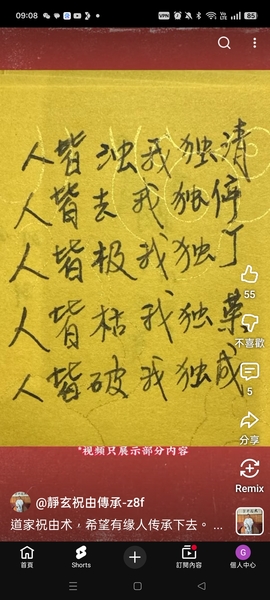 09:08
VPN
85
人皆浊我独清
人皆去我独停
人皆极我独丁
人皆枯我独葉
人皆破我独成
55
不喜歡
5
分享
Remix
*视频只展示部分内容
@靜玄祝由傳承-z8f
道家祝由术，希望有缘人传承下去。 ...
首頁
Shorts
訂閱內容
G
個人中心